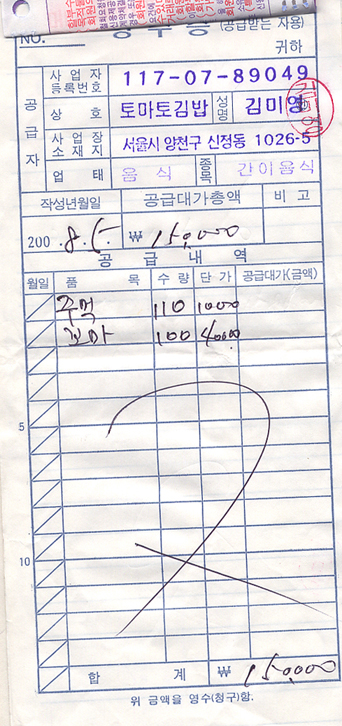 NO.
(공급받는 자용)
귀하
공급자
사업자등록번호 117-07-89049
상호 토마토김밥 성명 김미영
사업장소재지 서울시 양천구 신정동 1026-5
업태 음식 종목 간이음식
작성년월일 공급대가총액 비고
200 .8.5. ₩ 150,000
공급내역
월일 품목 수량 단가 공급대가(금액)
주먹 110 1000
꼬마 100 40000
5
10
합계 ₩ 150,000
위 금액을 영수(청구)함.